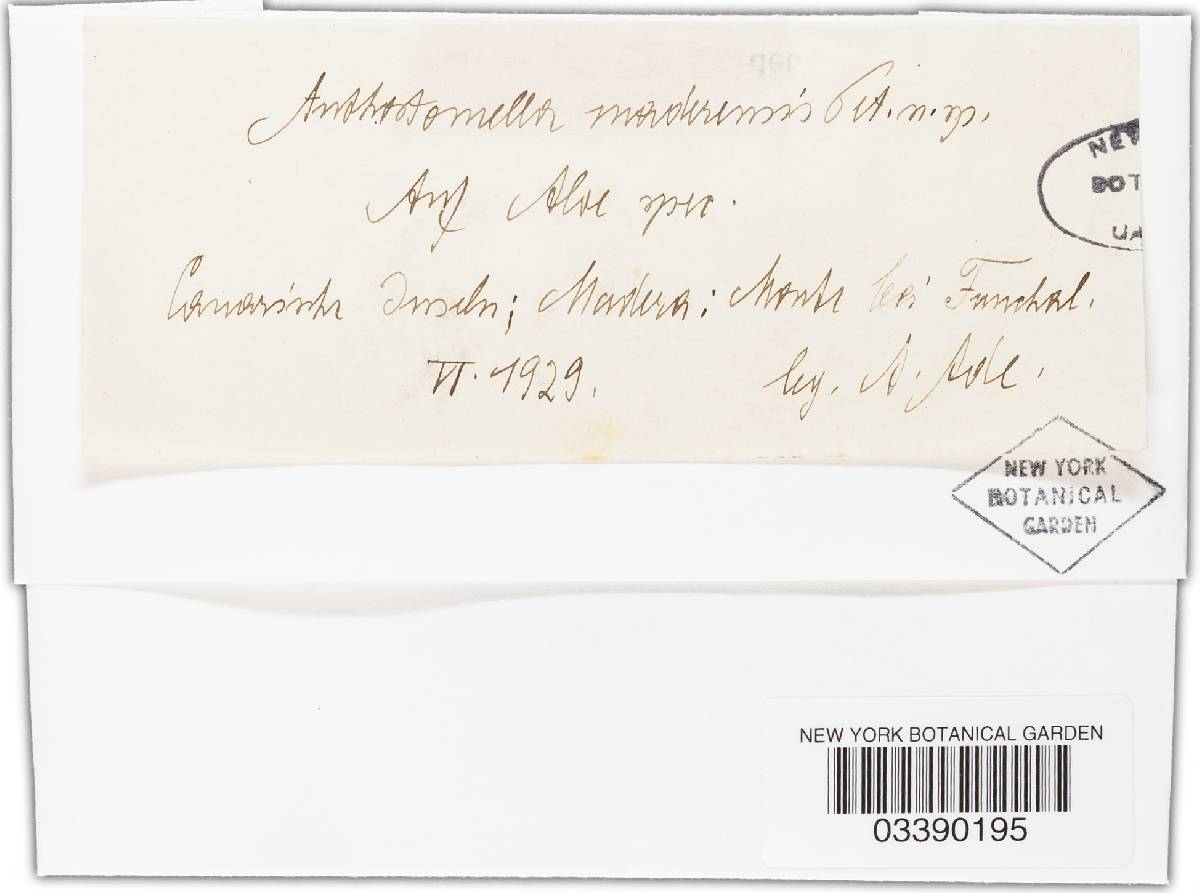 Anthostomella maderensis Pet. n. sp.
Auf Aloe spec.
Canarische Inseln; Madera: Monte bei Funchal.
VI. 1929. leg. A. Ade.
NEW
BOT
NEW YORK
BOTANICAL
GARDEN
NEW YORK BOTANICAL GARDEN
03390195